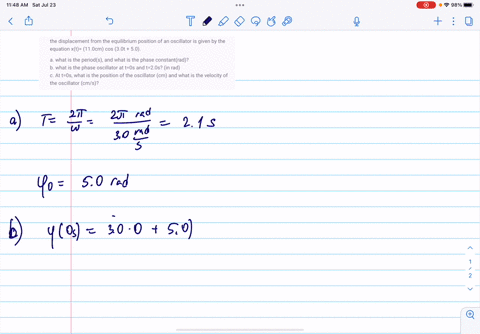 11:48 AM Sat Jul 23
the displacement from the equilibrium position of an oscillator is given by the
equation x(t)= (11.0cm) cos (3.0t + 5.0).
a. what is the period(s), and what is the phase constant(rad)?
b. what is the phase oscillator at t=0s and t=2.0s? (in rad)
c. At t=0s, what is the position of the oscillator (cm) and what is the velocity of
the oscillator (cm/s)?
a) T = 2π/ω = 2π rad / 3.0 rad/s = 2.1 s
φ0 = 5.0 rad
b) φ(0s) = 3.0 · 0 + 5.0)
1
2